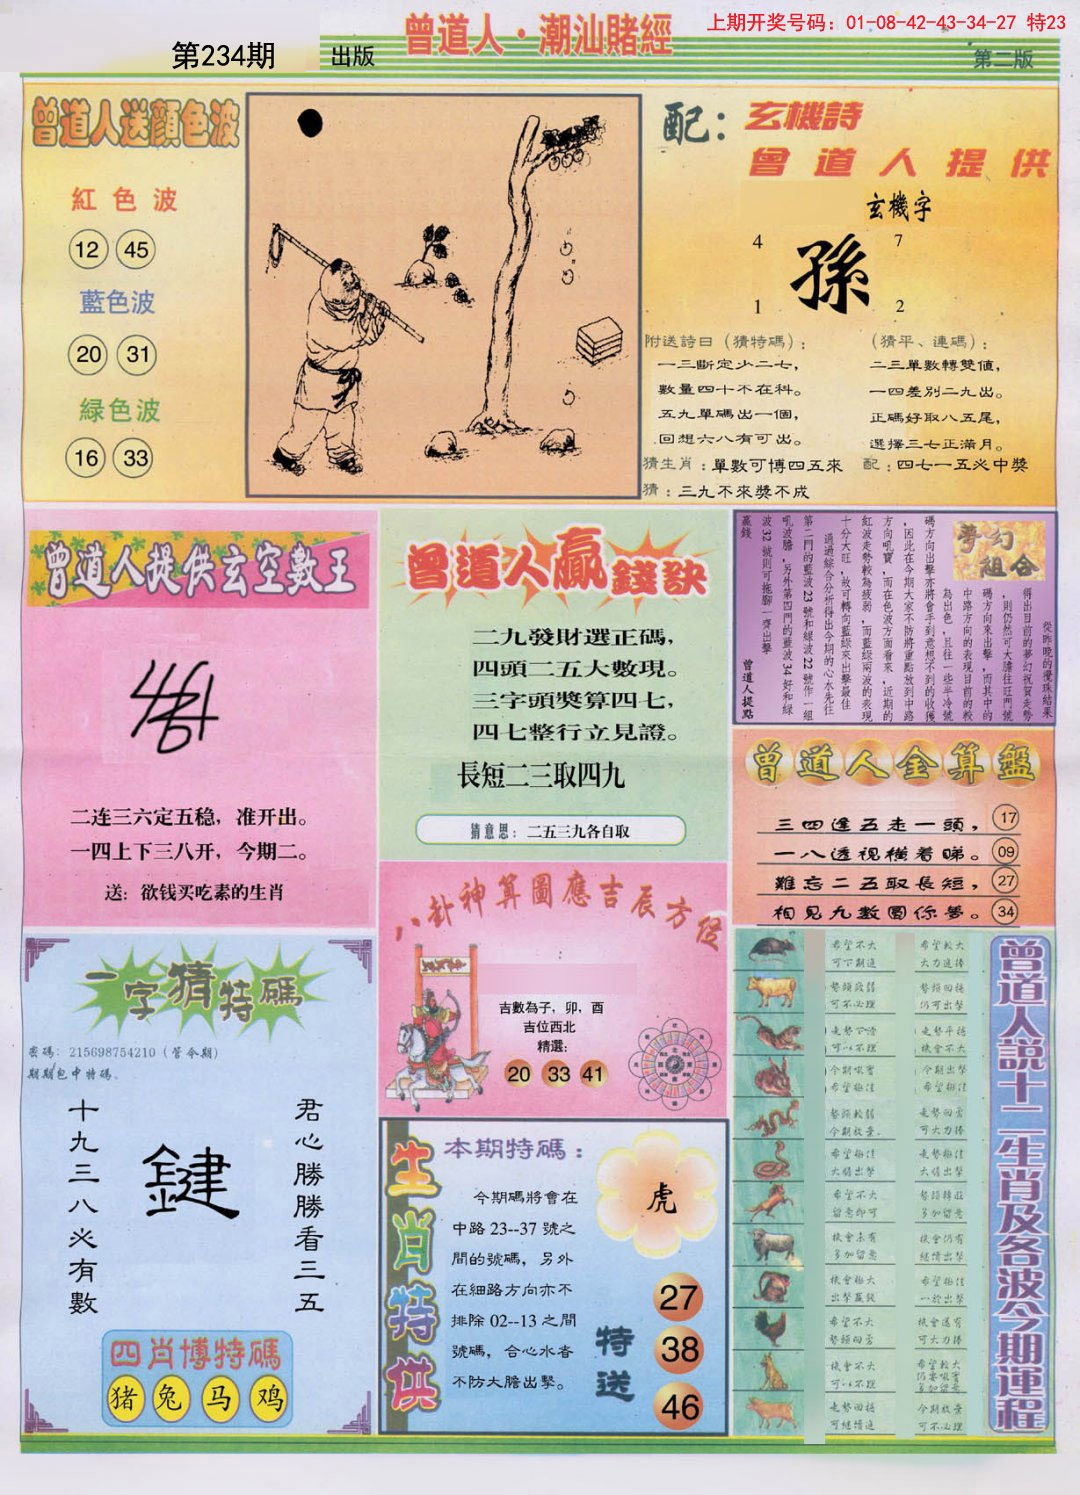 上期开奖号码：01-08-42-43-34-27 特23
曾道人·潮汕賭經
第234期
出版
第二版
曾道人送顔色波
紅色波
12 45
藍色波
20 31
緑色波
16 33
配：玄機詩
曾道人提供
玄機字
4 7
孫
1 2
附送詩曰（猜特碼）：
一三斷定少二七，
數量四十不在科。
五九單碼出一個，
回想六八有可出。
（猜平、連碼）：
二三單數轉雙値，
一四差別二九出。
正碼好取八五尾，
選擇三七正滿月。
猜生肖：單數可博四五來
配：四七一五必中獎
猜：三九不來獎不成
曾道人提供玄空數王
二连三六定五稳，准开出。
一四上下三八开，今期二。
送：欲钱买吃素的生肖
曾道人贏錢訣
二九發財選正碼，
四頭二五大數現。
三字頭獎算四七，
四七整行立見證。
長短二三取四九
猜意思：二五三九各自取
夢幻組合
從昨晚的攪珠結果
得出目前的夢幻祝賀走勢
，則仍然可大膽往旺門號
碼方向來出擊，而其中的
中路方向的表現目前的較
為出色，且往一些半冷號
碼方向出擊亦將會手到意想不到的收獲
，因此在今期大家不防將重點放到中路
方向吼寶，而在色波方面看來，近期的
紅波走勢較為疲弱，而藍綠兩波的表現
十分大旺，故可轉向藍綠來出擊最佳
通過綜合分析得出今期的心水先往
第二門的藍波23號和綠波22號作一組
吼波膽，另外第四門的藍波34好和綠
波32號則可拖腳一齊出擊
贏錢
曾道人提點
曾道人金算盤
三四逢五走一頭， 17
一八透視橫着睇。 09
難忘二五取長短， 27
相見九數圓你夢。 34
八卦神算圖應吉辰方位
吉數為子，卯，酉
吉位西北
精選：
20 33 41
一字猜特碼
密碼：215698754210（管今期）
期期包中特碼。
君心勝勝看三五
鍵
十九三八必有數
四肖博特碼
猪 兔 马 鸡
生肖特供
本期特碼：
今期碼將會在
中路23--37號之
間的號碼，另外
在細路方向亦不
排除02--13之間
號碼，合心水者
不防大膽出擊。
虎
特送
27
38
46
曾道人說十二生肖及各波今期運程
希望不大
可下期進
希望較大
大力進捧
今期出擊
大膽出擊
希望不大
留意即可
機會未有
多加留意
機會仍有
繼續出擊
機會極大
出擊贏錢
希望極佳
希望不大
機會還有
可大力捧
機會不大
希望較大
走勢回穩
可繼續進
今期放棄
可不必理